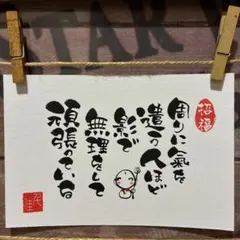 周りに氣を
遣う人ほど
影で
無理をして
頑張っている
招福